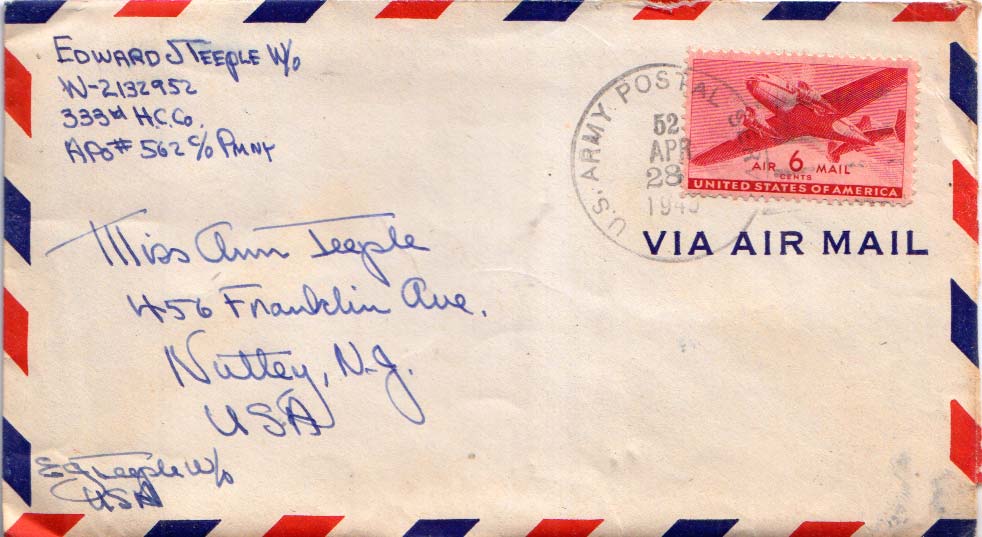 EDWARD J TEEPLE W/O
W-2132952
333rd H.C.Co.
APO# 562 c/o PMNY
U.S. ARMY POSTAL
52
APR
28
194
AIR 6 MAIL
CENTS
UNITED STATES OF AMERICA
VIA AIR MAIL
Miss Ann Teeple
456 Franklin Ave.
Nutley, N.J.
USA
E J Teeple W/O
USA